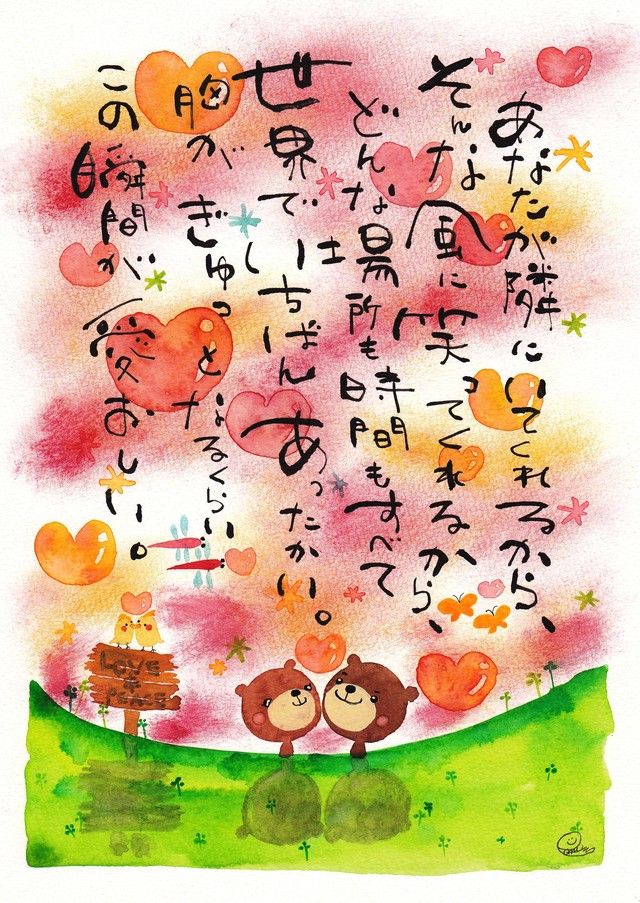 あなたが隣にいてくれるから、
そんな風に笑ってくれるから、
どんな場所も時間もすべて
世界でいちばんあったかい。
胸がぎゅっとなるくらい
この瞬間が愛おしい。
LOVE
+
PEACE